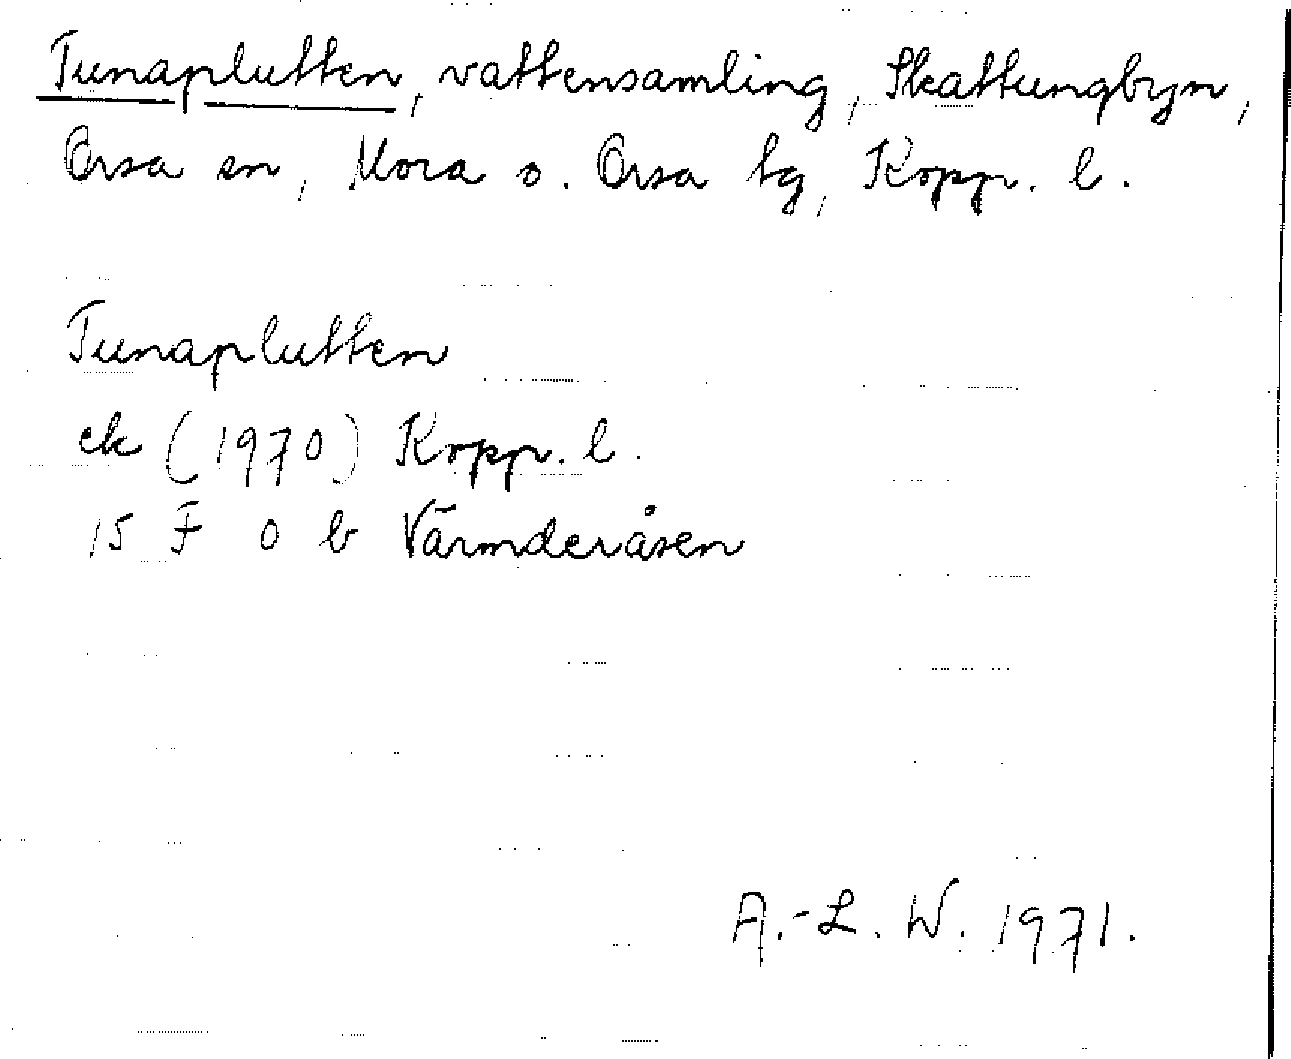 Tunaplutten, vattensamling, Skattungbyn,
Orsa sn, Mora o. Orsa tg, Kopp. l.
Tunaplutten
ek (1970) Kopp. l.
15 F 0 b Värmderåsen
A.-L. W. 1971.